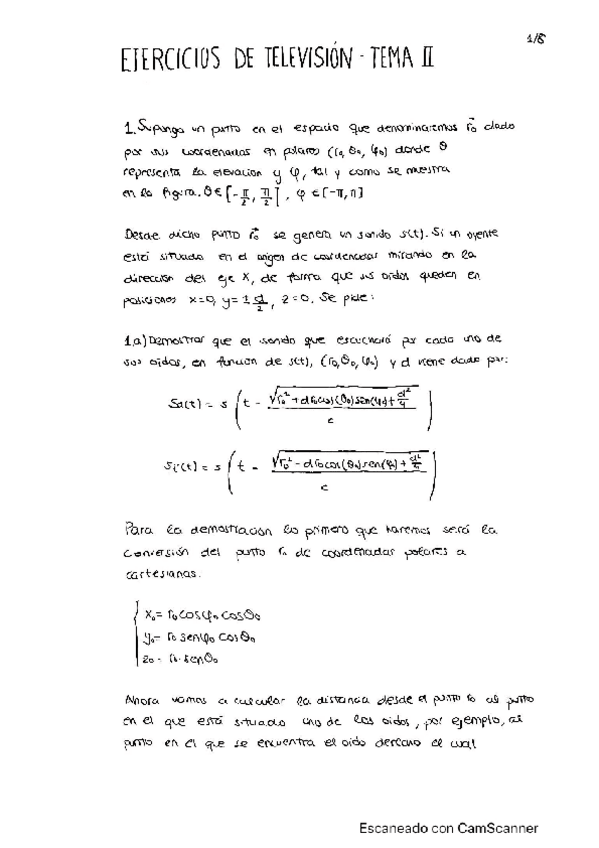 1/8
EJERCICIOS DE TELEVISIÓN - TEMA II
1. Suponga un punto en el espacio que denominaremos r⃗₀ dado
por sus coordenadas en polares (r₀, θ₀, φ₀) donde θ
representa la elevacion y φ, tal y como se muestra
en la figura. θ∈[-π/2, π/2], φ∈[-π,π]
Desde dicho punto r⃗₀ se genera un sonido s(t). Si un oyente
está situado en el origen de coordenadas mirando en la
dirección del eje X, de forma que sus oidos queden en
posiciones x=0, y=± d/2, z=0. Se pide:
1.a) Demostrar que el sonido que escuchará por cada uno de
sus oidos, en funcion de s(t), (r₀,θ₀,φ₀) y d viene dado por:
Sd(t) = s(t - √(r₀² + d r₀ cos(θ₀) sen(φ₀) + d²/4) / c)
Si(t) = s(t - √(r₀² - d r₀ cos(θ₀) sen(φ₀) + d²/4) / c)
Para la demostracion lo primero que haremos será la
conversión del punto r₀ de coordenadas polares a
cartesianas.
x₀= r₀ cosφ₀ cosθ₀
y₀= r₀ senφ₀ cosθ₀
z₀= r₀·senθ₀
Ahora vamos a calcular la distancia desde el punto r₀ al punto
en el que está situado uno de los oidos, por ejemplo, al
punto en el que se encuentra el oido derecho el cual
Escaneado con CamScanner